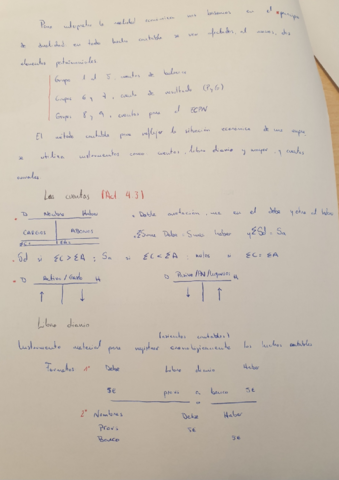 Para interpretar la realidad economica nos basamos en el principio
de dualidad: en todo hecho contable se ven afectados, al menos, dos
elementos patrimoniales
Grupo 1 al 5, cuentas de balance
Grupo 6 y 7, cuenta de resultado (PyG)
Grupo 8 y 9, cuentas para el ECPN
El método contable para reflejar la situación económica de una empresa
se utiliza instrumentos como cuentas, libro diario y mayor, y cuentas
anuales
Las cuentas
D Nombre Haber
CARGOS ABONOS
Doble anotación, una en el debe y otra al haber
Suma Debe = Suma haber y ΣSd = Sa
Sd si ΣC > ΣA ; Sa si ΣC < ΣA ; nula si ΣC = ΣA
D Activo / Gasto H
D Pasivo/PN/Ingresos H
↑ ↓
↓ ↑
Libro diario
(asientos contables)
Instrumento material para registrar cronológicamente los hechos contables
Formatos 1º Debe Libro diario Haber
5€ a banco 5€
2º Nombres Debe Haber
5€
Banco 5€